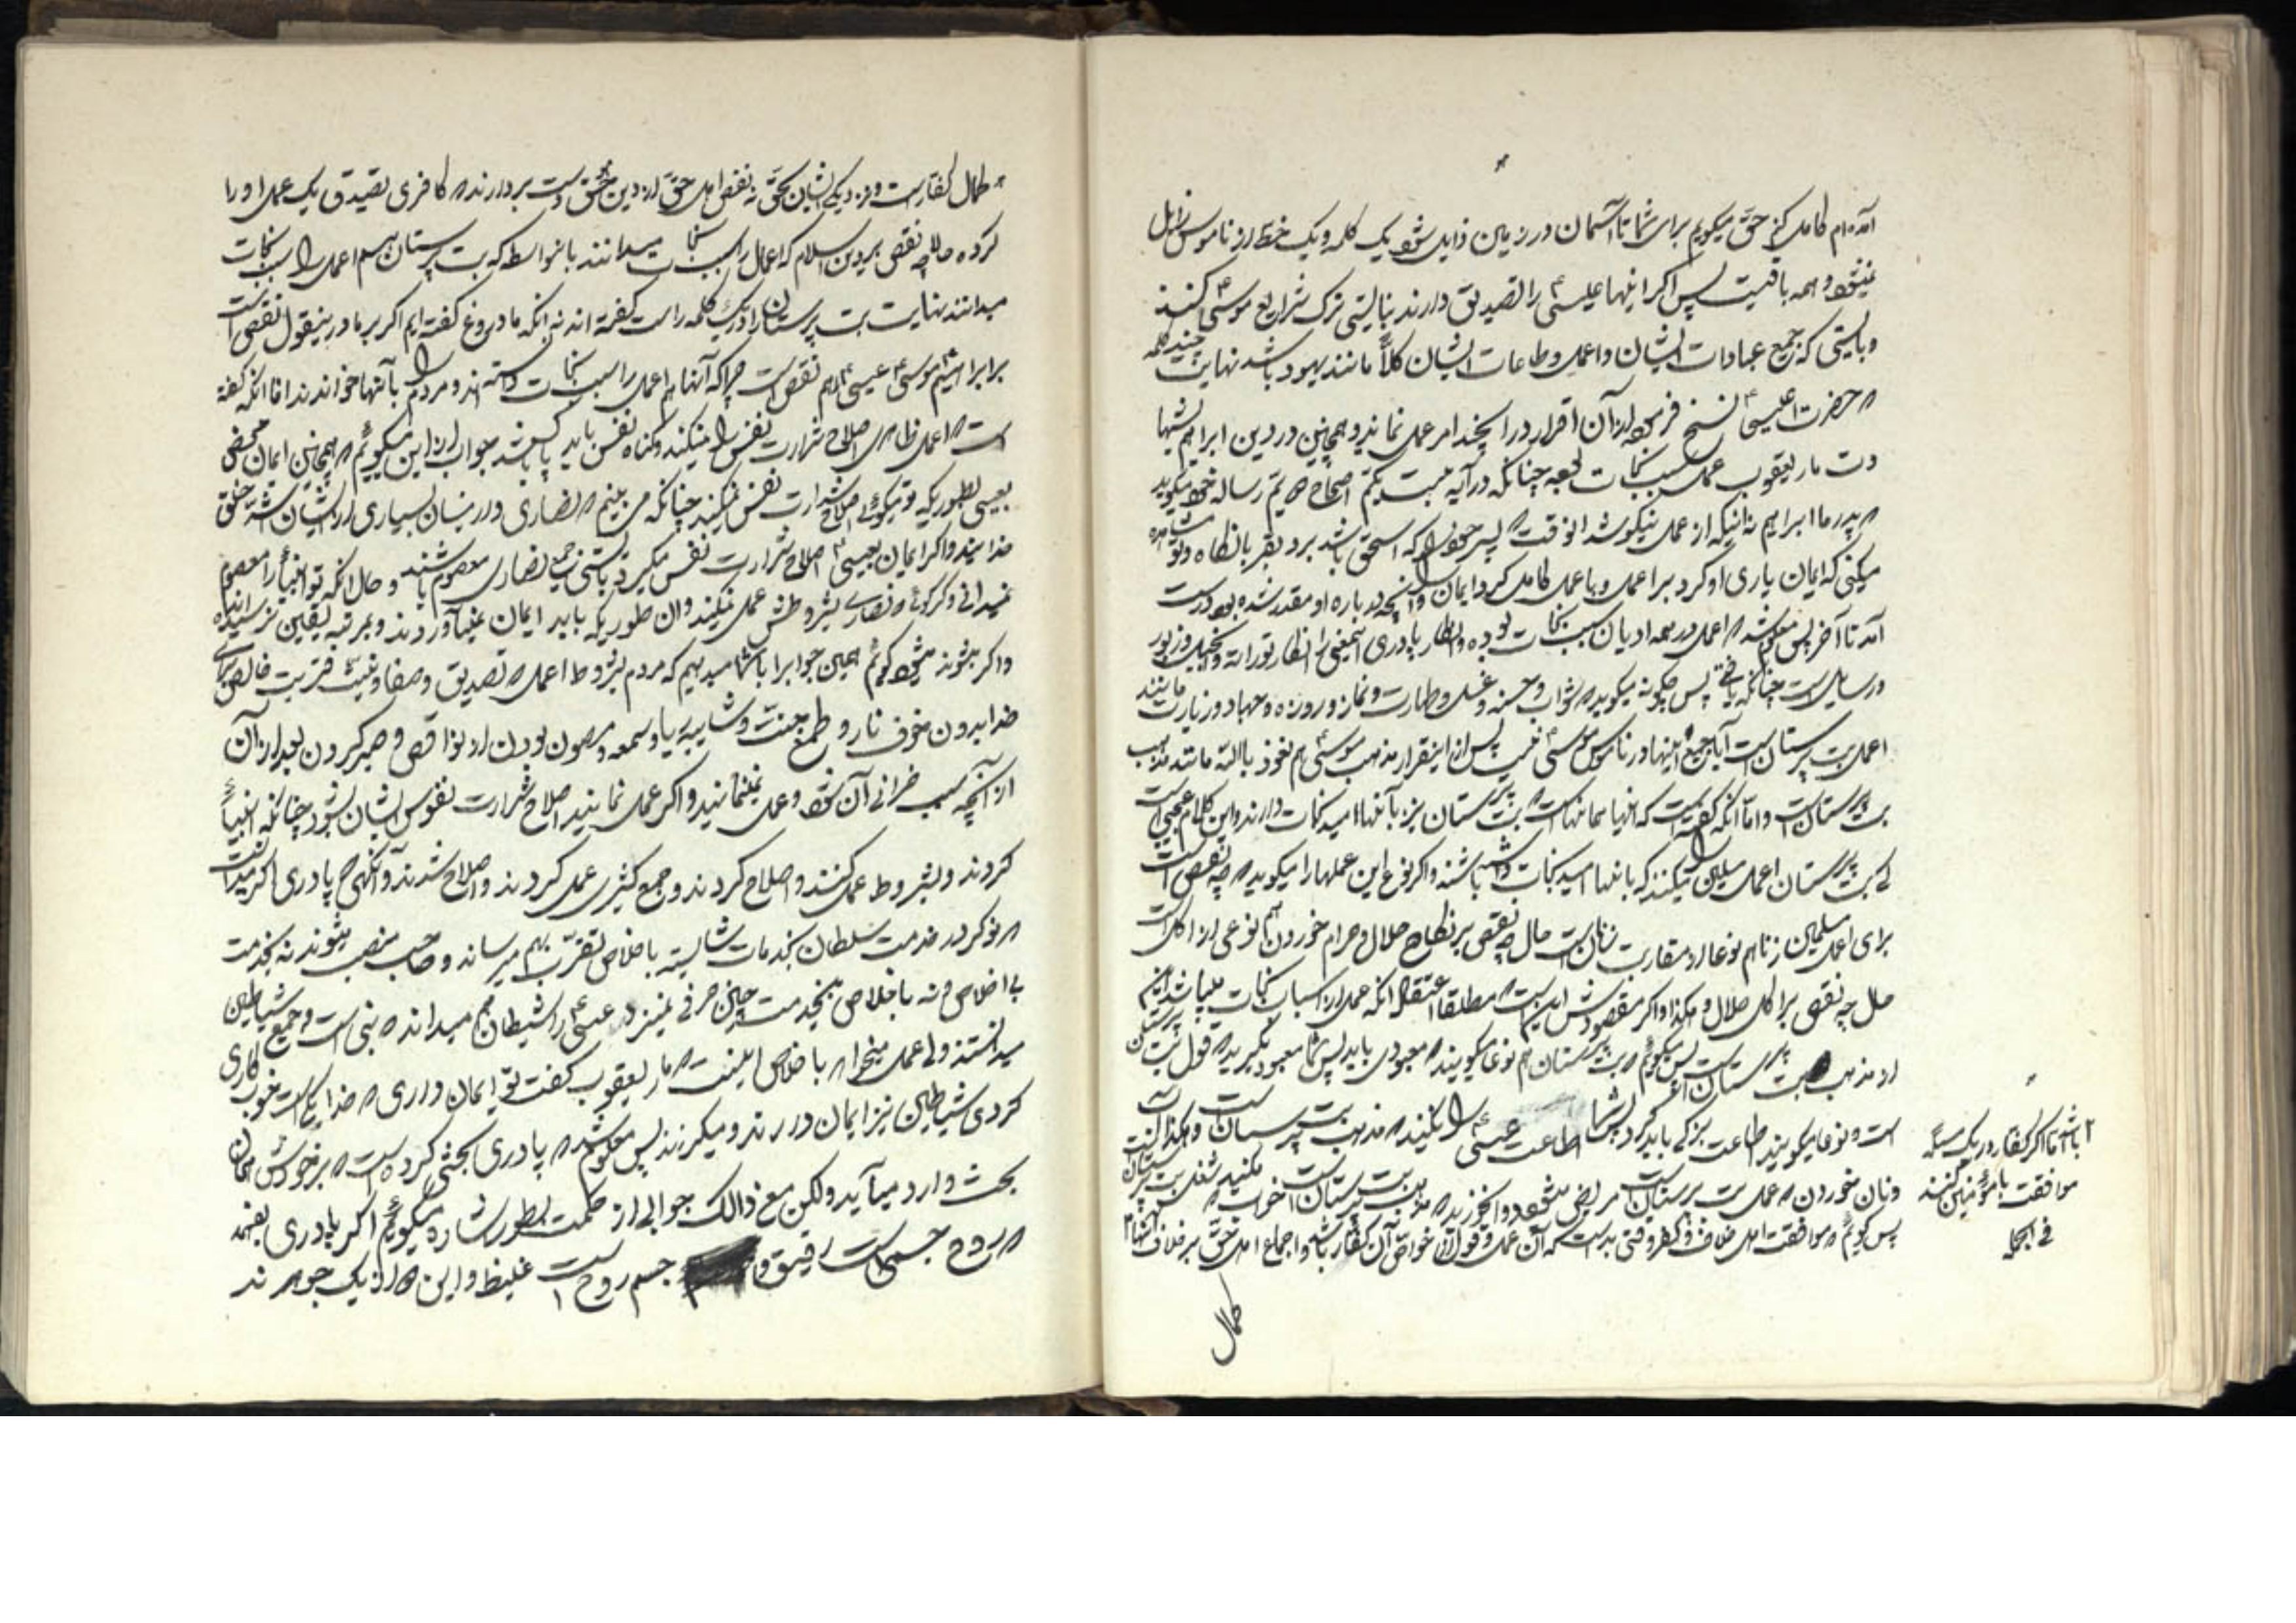 آمده‌ام کامل کنم حق میگویم برای شما تا آسمان و زمین زایل شود یک کلمه و یک خط از ناموس زایل
نمیشود و همه باقیست پس اگر اینها عیسی را تصدیق دارند بایستی ترک شرایع موسی نکنند
و بایستی که جمیع عبادات ایشان و اعمال و طاعات ایشان کلاً مانند یهود باشد نهایت چند کلمه
که حضرت عیسی نسخ فرموده از آن اقرار در آن چند امر عمل نمایند و همچنین در دین ابراهیم
مار یعقوب عمل سبب نجات بوده چنانکه در آیه بیست یکم اصحاح دویم رساله خود میگوید
که پدر ما ابراهیم نه اینکه از عمل نیکو شد آنوقت که پسر خود را که اسحق باشد برد بقربانگاه و تو مشاهده
میکنی که ایمان یاری او کرد بر اعمل و با عمل کامل کرد ایمان را و آنچه در باره او مقدر شده بود درست
آمد تا آخر پس معلوم شد که اعمل در همه ادیان سبب نجات بوده و انکار پادری اینمعنی را انکار تورات و انجیل و زبور
و رسایل است چنانکه یافتی پس چگونه میگوید که ثواب و حسنه و غسل و طهارت و نماز و روزه و جهاد و زیارت مانند
اعمل بت پرستان است آیا جمیع اینها در ناموس موسی نیست پس از اینقرار مذهب موسی هم نعوذ بالله مانند مذهب
بت پرستان است و اما آنکه گفته است که اینها همانهاست که بت پرستان نیز بآنها امید نجات دارند و این کلام عجیبی است
کی بت پرستان اعمل مسلمین را میکنند که بآنها امید نجات داشته باشند و اگر نوع این عملها را میگوید چه نقص است
برای اعمل مسلمین زنا هم نوعا از مقاربت زنان است حال چه نقصی بر نکاح حلال و حرام خوردن هم نوعی از اکل است
حال چه نقصی بر اکل حلال و هکذا و اگر مقصودش این است که مطلقا اعتقاد آنکه عمل از اسباب نجات میباشد این
از مذهب بت پرستان است پس میگویم که بت پرستان هم نوعا میگویند که معبودی باید پس شما معبود نگیرید که قول بت پرستان
است و نوعا میگویند اطاعت بزرگی باید کرد پس شما اطاعت عیسی را نکنید که مذهب بت پرستان است و هکذا
و نان خوردن که عمل بت پرستان است
پس گویم که موافقت اهل خلاف و کفر وقتی بد است که آن عمل و قول از خواص آن کفار باشد و اجماع اهل حق بر خلاف آنها
باشد اما اگر کفار در یک مسئله
موافقت با مؤمنین کنند
فی الجمله
کمال
کمال کفار است و نزدیکی ایشان بحق نه نقص اهل حق از دین حق دست بردارند که کافری تصدیق یک عمل او را
کرده حال چه نقصی بر دین اسلام که اعمال را سبب نجات میدانند بآنواسطه که بت پرستان هم اعمل را سبب نجات
میدانند نهایت بت پرستان در یک کلمه راست گفته‌اند نه آنکه ما دروغ گفته‌ایم اگر بر ما در اینقول نقصی است
بر ابراهیم و موسی و عیسی هم نقص است چرا که آنها هم اعمل را سبب نجات دانسته‌اند و مردم را بآنها خواندند اما آنکه گفته
است که اعمل ظاهری اصلاح شرارت نفس را نمیکند و گناه نفس باید کشته باشد جواب از این میگویم که همچنین ایمان محض
بعیسی بطوریکه تو میگوئی اصلاح شرارت نفس نمیکند چنانکه می بینم که نصاری در میان بسیاری از ایشان اشد خلق
خدایند و اگر ایمان بعیسی اصلاح شرارت نفس میکرد بایستی جمیع نصاری معصوم باشند و حال آنکه تو انبیا را معصوم
نمیدانی و اگر گوئی که نصاری بشروطش عمل نمیکنند و آن طوریکه باید ایمان نمیآوردند و بمرتبه یقین نرسیده‌اند
و اگر بشوند میشود گویم همین جواب را با شما میدهیم که مردم بشروط اعمل که تصدیق و صفا و نیت قربت خالص برای
خدا بدون خوف نار و طمع جنت و شایبه ریا و سمعه و مصون بودن از نواقص و صبر کردن بعد از آن
از آنچه سبب خرابی آن شود عمل نمینمایند و اگر عمل نمایند اصلاح شرارت نفوس ایشان بشود چنانکه انبیاء
کردند و بشروط عمل کنند و اصلاح کردند و جمع کثیری عمل کردند و اصلاح شدند و آنگهی پادری اگر میدانست
که نوکر در خدمت سلطان بخدمات شایسته باخلاص تقرب بهم میرساند و صاحب منصب میشوند نه بخدمت
بی اخلاص و نه باخلاص بیخدمت چنین حرفی نمیزد عیسی را شیطان هم میداند که نبی است و جمیع شیاطین
میدانستند ولی عمل میخواهد باخلاص اینست که مار یعقوب گفت تو ایمان داری که خدا یکی است خوب کاری
کردی شیاطین نیز ایمان دارند و میلرزند پس معلوم شد که پادری بحثی کرده است که بر خودش همان
بحث وارد میآید ولکن مع ذالک جوابی از حکمت بطور اشاره میگویم اگر پادری بفهمد
که روح جسمی است رقیق و جسم روح است غلیظ و این هر دو از یک جوهرند